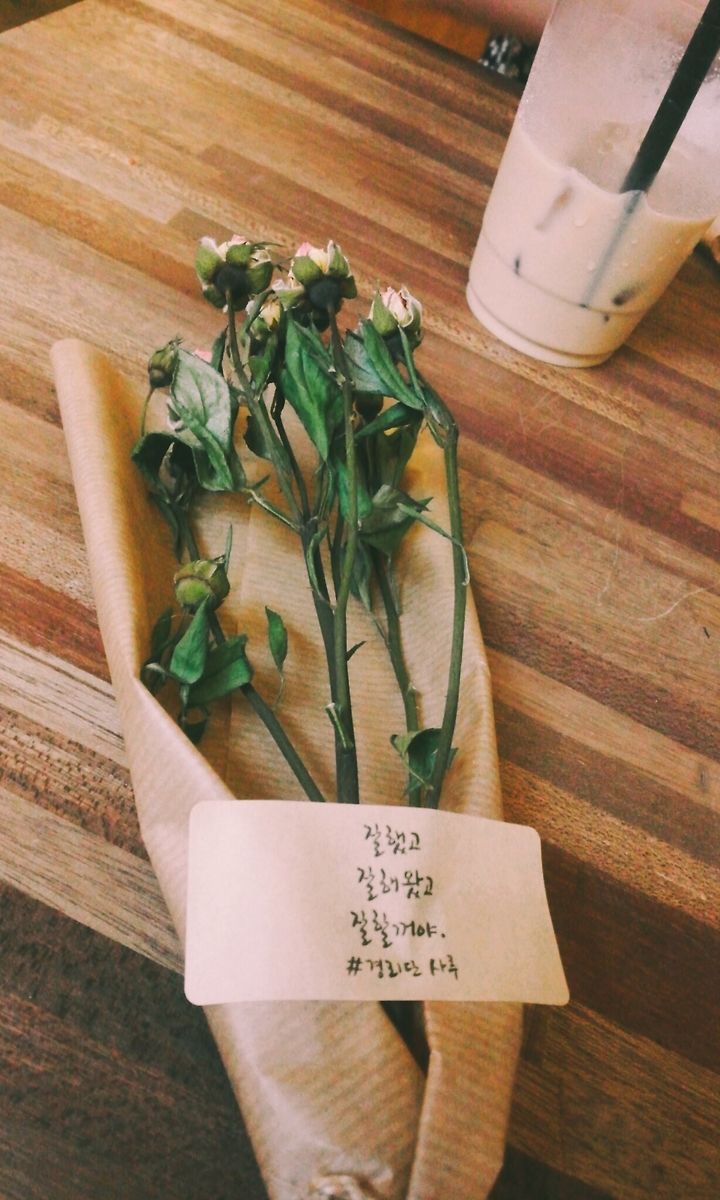 잘했고
잘해왔고
잘할꺼야.
#경리단 사루